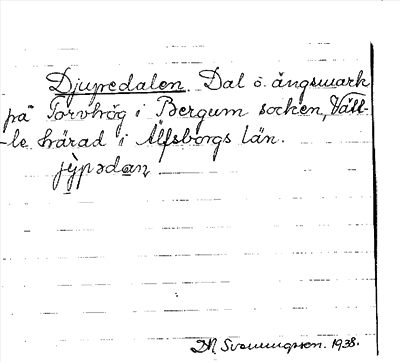 Djupedalen. Dal o. ängsmark
på Torvhög i Bergum socken, Vätt-
-le härad i Älfsborgs län.
jỳpədan,
DM Svenningsson. 1938.